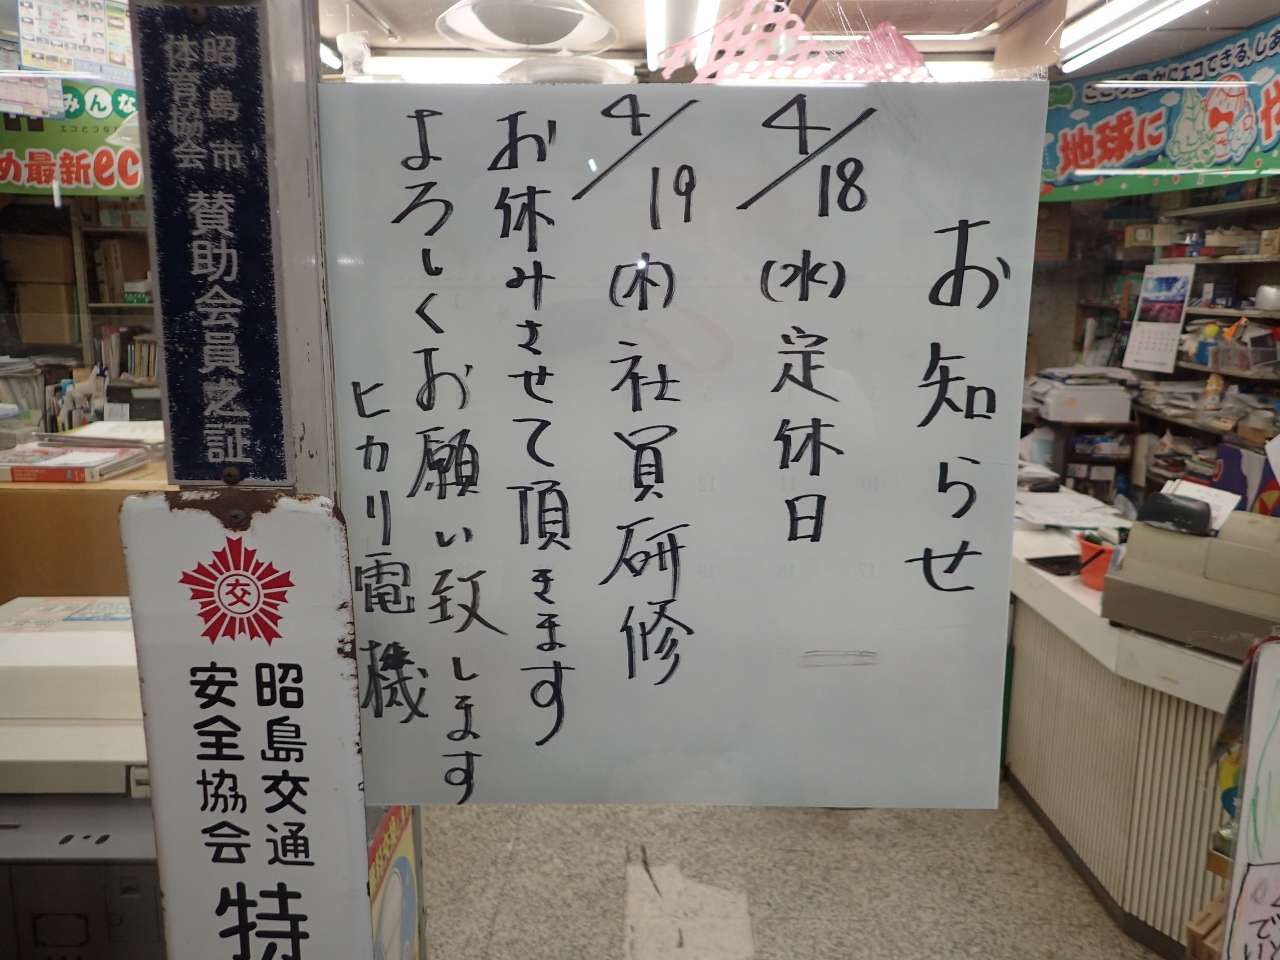 お知らせ
4/18(水)定休日
4/19(木)社員研修
お休みさせて頂きます
よろしくお願い致します
ヒカリ電機
昭島市
体育協会
賛助会員之証
交
昭島交通
安全協会
特
みんな
め最新ec
地球に